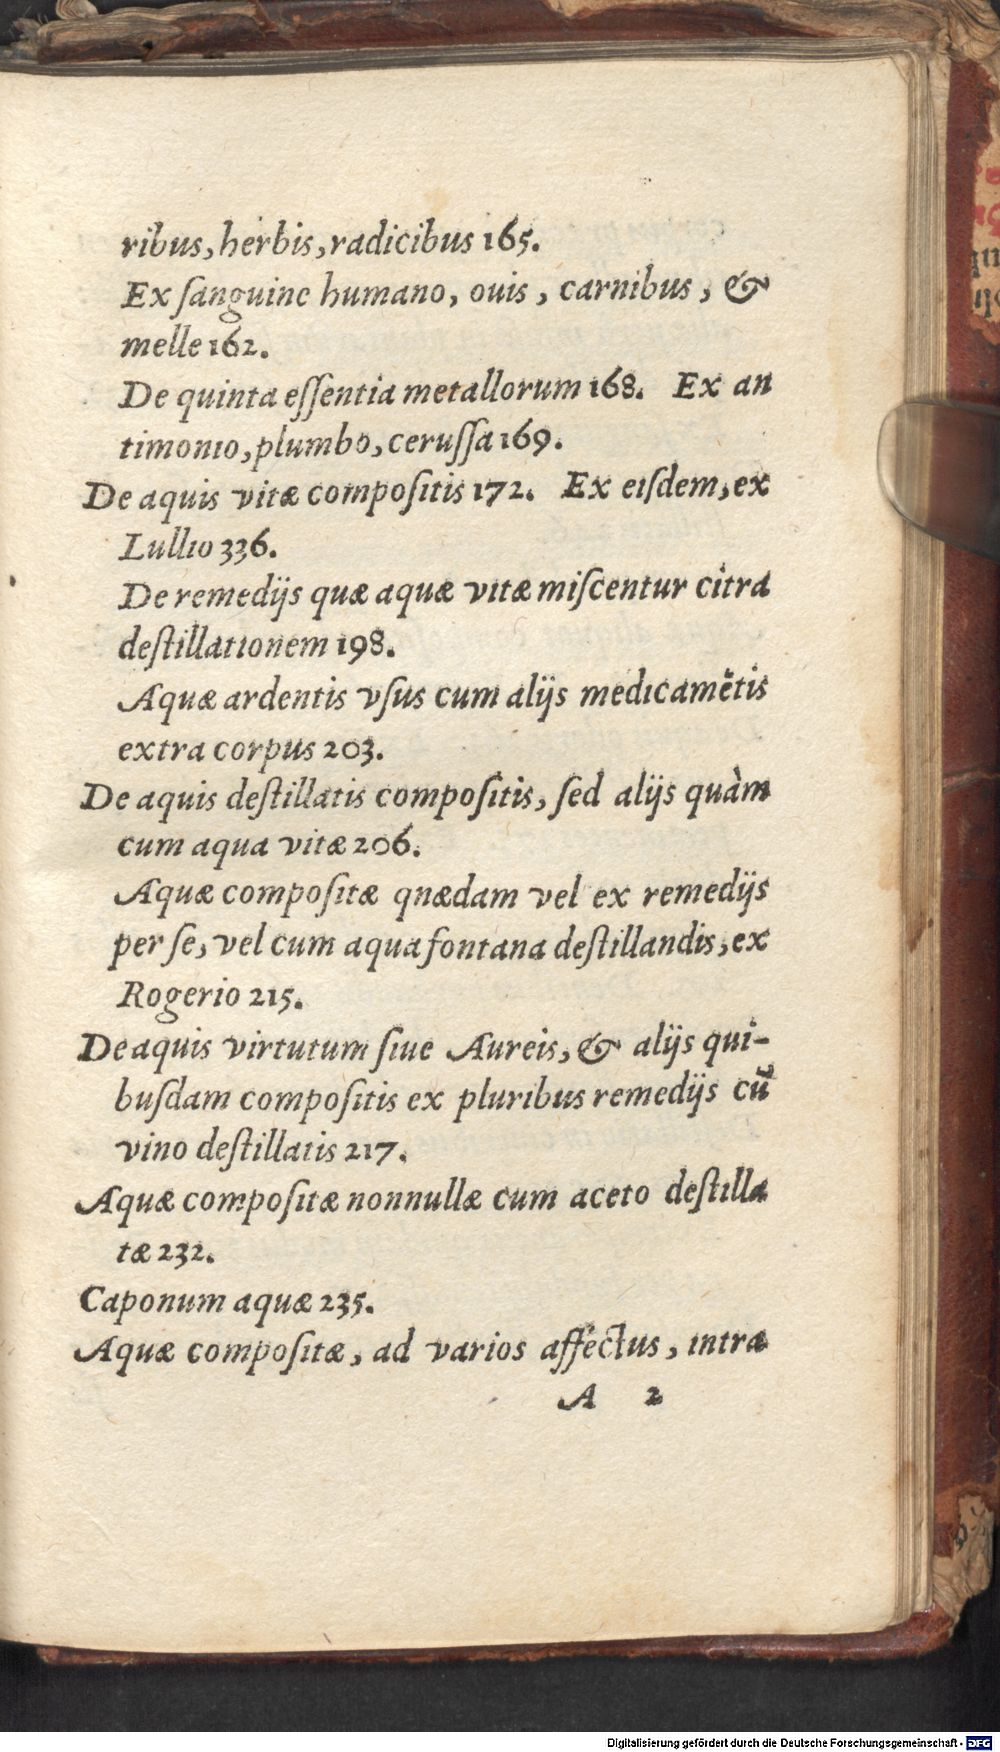 ribus, herbis, radicibus 165.
Ex ſanguine humano, ouis, carnibus, &
melle 162.
De quinta eſſentia metallorum 168. Ex an
timonio, plumbo, ceruſſa 169.
De aquis vitæ compoſitis 172. Ex eiſdem, ex
Lullio 336.
De remedijs quæ aquæ vitæ miſcentur citra
deſtillationem 198.
Aquæ ardentis vſus cum alijs medicamētis
extra corpus 203.
De aquis deſtillatis compoſitis, ſed alijs quàm
cum aqua vitæ 206.
Aquæ compoſitæ qnædam vel ex remedijs
per ſe, vel cum aqua fontana deſtillandis, ex
Rogerio 215.
De aquis virtutum ſiue Aureis, & alijs qui-
buſdam compoſitis ex pluribus remedijs cū
vino deſtillatis 217.
Aquæ compoſitæ nonnullæ cum aceto deſtilla
tæ 232.
Caponum aquæ 235.
Aquæ compoſitæ, ad varios affectus, intra
A 2
Digitalisierung gefördert durch die Deutsche Forschungsgemeinschaft - DFG